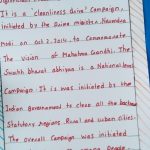 It is a "cleanliness Drive" campaign,
initiated by the Prime minister Narendra
Modi on Oct 2, 2014, to commemorate
The vision of Mahatma Gandhi. The
Swachh bharat abhiyan is a National level
Campaign. It is was initiated by the
Indian government to clean all the backward
Statutory regions Rural and urban cities.
The overall campaign was initiated